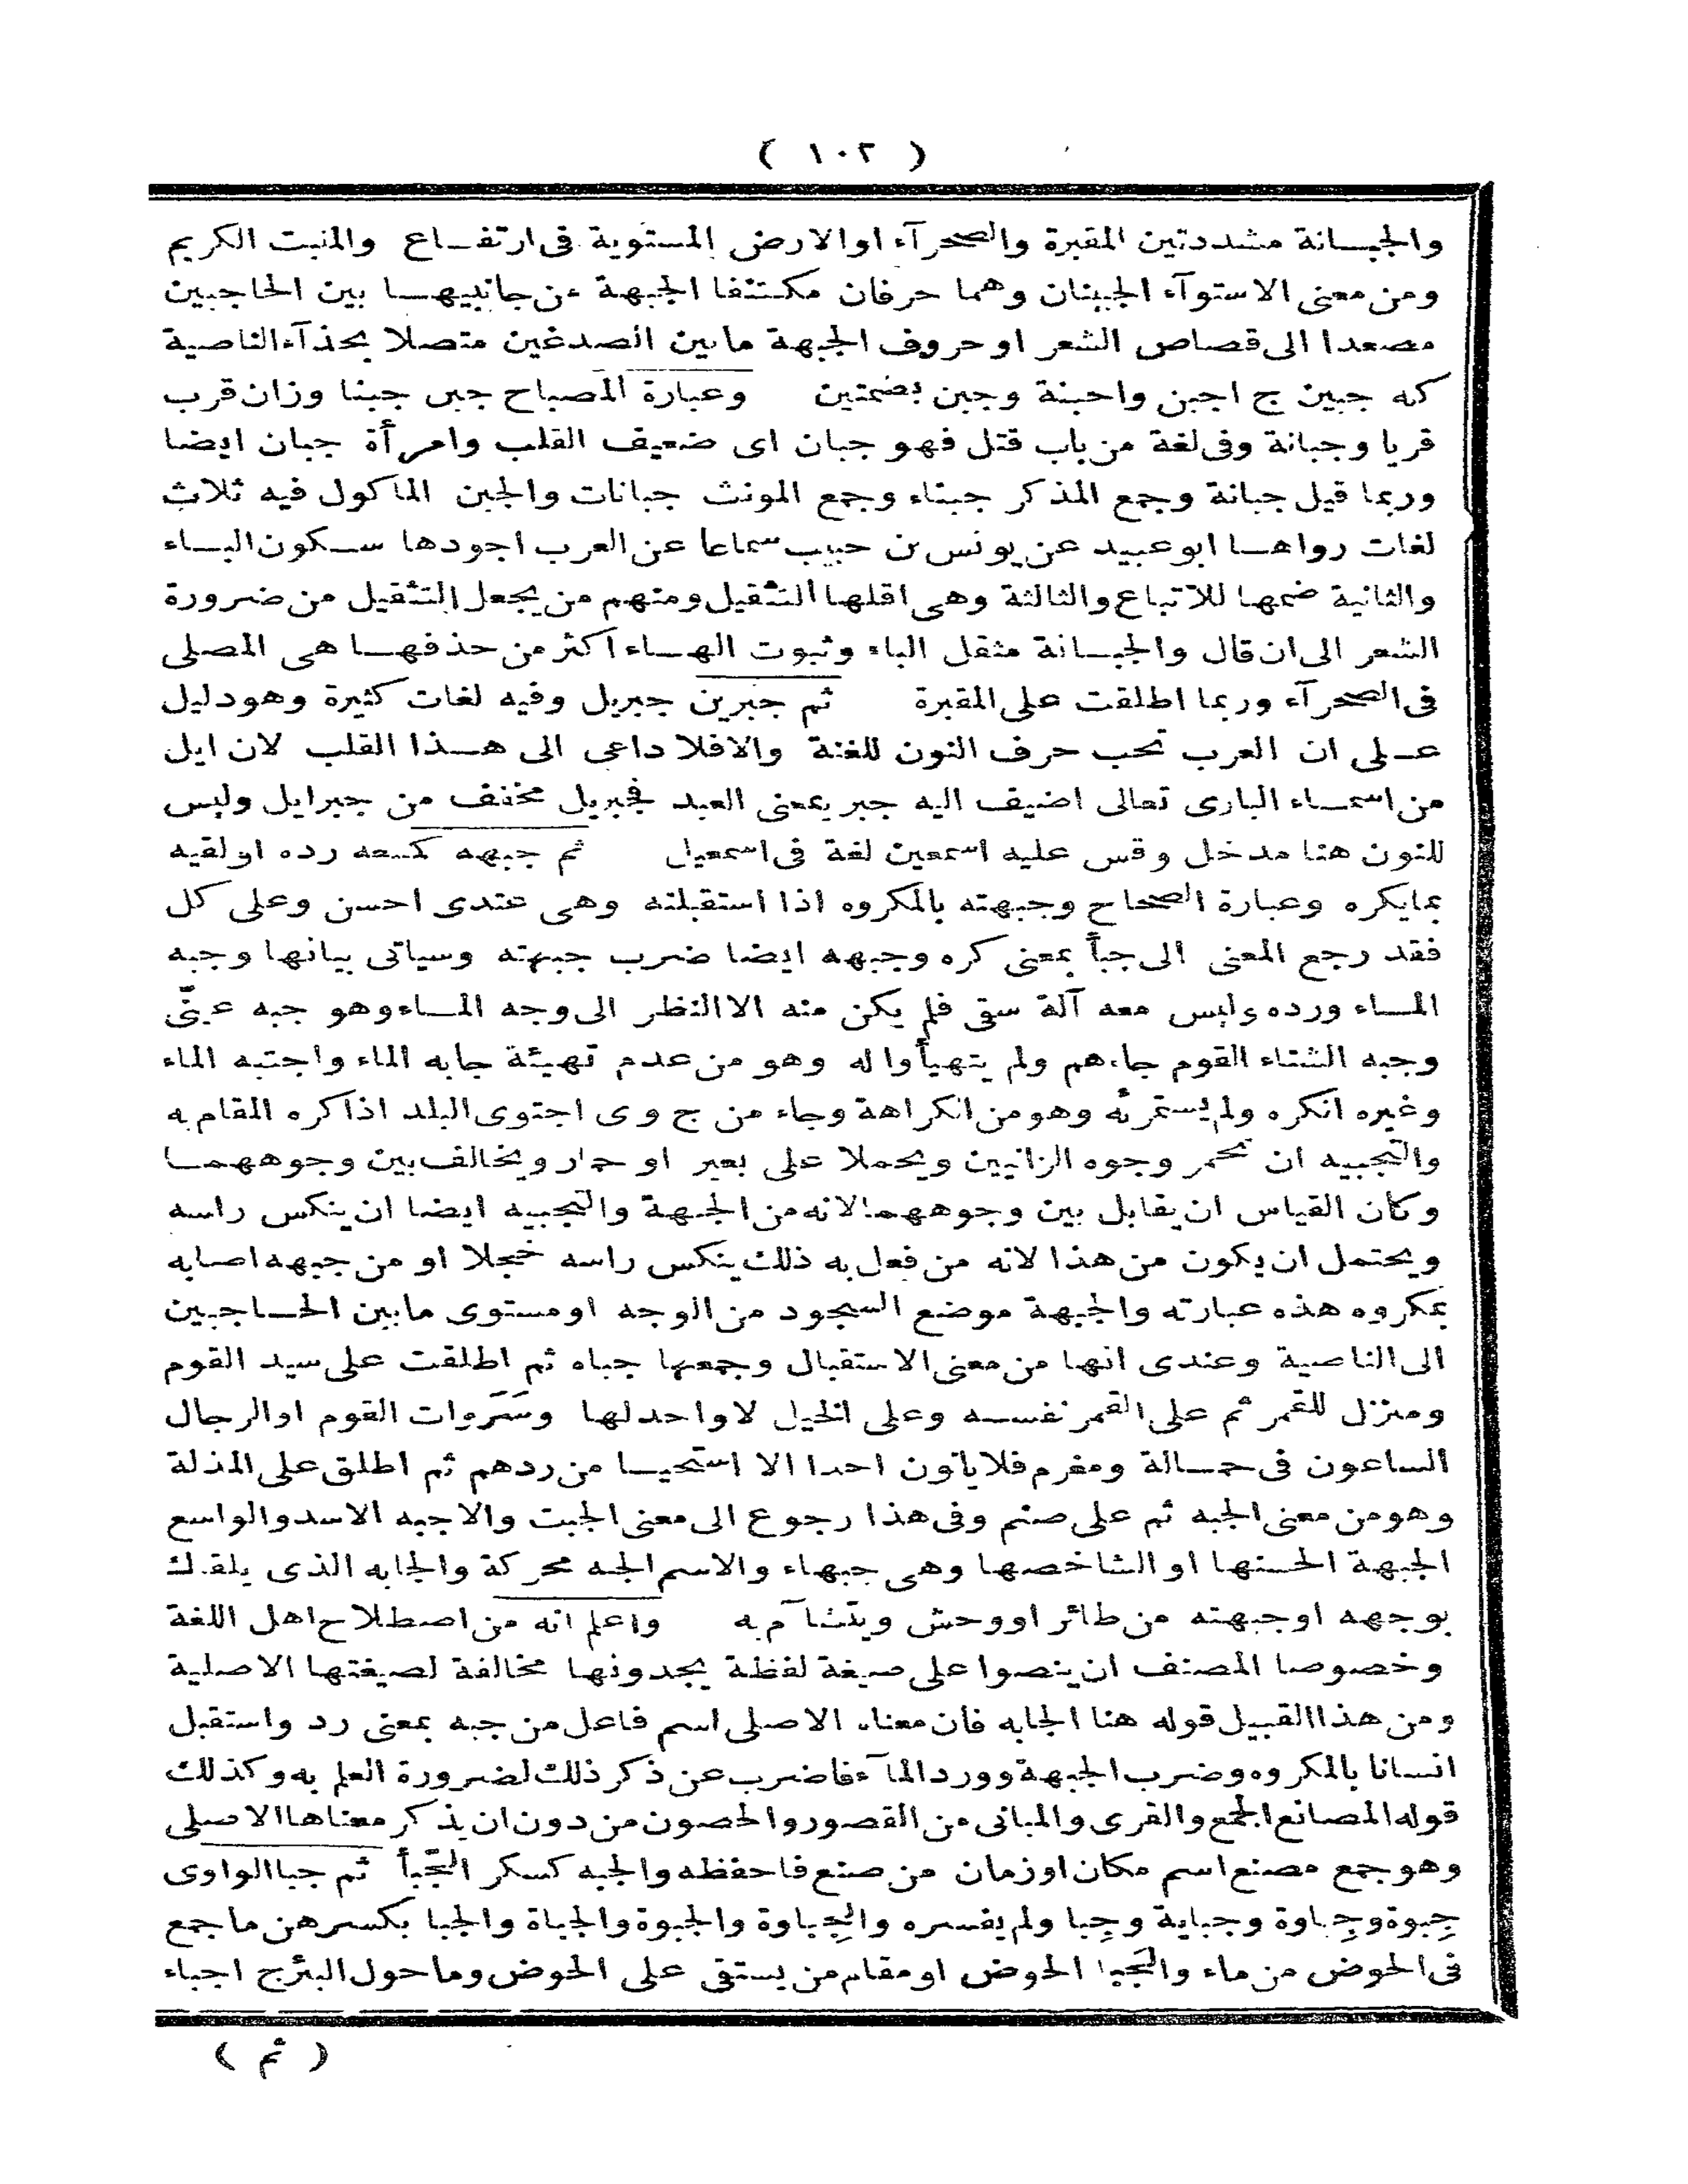 ( ١٠٢ )
والجبـانة مشددتين المقبرة والصحرآء اوالارض المستوية فى ارتفـاع والمنبت الكريم
ومن معنى الاستوآء الجبينان وهما حرفان مكتنفا الجبهة من جانبيهـا بين الحاجبين
مصعدا الى قصاص الشعر او حروف الجبهة مابين الصدغين متصلا بحذآء الناصية
كله جبين ج اجبن واجبنة وجبن بضمتين وعبارة المصباح جبن جبنا وزان قرب
قربا وجبانة وفى لغة من باب قتل فهو جبان اى ضعيف القلب وامرأة جبان ايضا
وربما قيل جبانة وجمع المذكر جبناء وجمع المونث جبانات والجبن الماكول فيه ثلاث
لغات رواهـا ابو عبيد عن يونس بن حبيب سماعا عن العرب اجودها سـكون البـاء
والثانية ضمها للاتباع والثالثة وهى اقلها التثقيل ومنهم من يجعل التثقيل من ضرورة
الشعر الى ان قال والجبـانة مثقل الباء وثبوت الهـاء اكثر من حذفهـا هى المصلى
فى الصحرآء وربما اطلقت على المقبرة ثم جبرين جبريل وفيه لغات كثيرة وهو دليل
عـلى ان العرب تحب حرف النون للغنة والا فلا داعى الى هـذا القلب لان ايل
من اسمـاء البارى تعالى اضيف اليه جبر بمعنى العبد فجبريل مخفف من جبرايل وليس
للنون هنا مدخل وقس عليه اسمعين لغة فى اسمعيل ثم جبهه كمنعه رده او لقيه
بمايكره وعبارة الصحاح وجبهته بالمكروه اذا استقبلته وهى عندى احسن وعلى كل
فقد رجع المعنى الى جبأ بمعنى كره وجبهه ايضا ضرب جبهته وسياتى بيانها وجبه
المـاء ورده وليس معه آلة سقى فلم يكن منه الا النظر الى وجه المـاء وهو جبه عبنّى
وجبه الشتاء القوم جاءهم ولم يتهيأوا له وهو من عدم تهيئة جابه الماء واجتبه الماء
وغيره انكره ولم يستمرئه وهو من الكراهة وجاء من ج وى اجتوى البلد اذا كره المقام به
والتجبيه ان تحمر وجوه الزانيين ويحملا على بعير او حمار ويخالف بين وجوههمـا
وكان القياس ان يقابل بين وجوههما لانه من الجبهة والتجبيه ايضا ان ينكس راسه
ويحتمل ان يكون من هذا لانه من فعل به ذلك ينكس راسه خجلا او من جبهه اصابه
بمكروه هذه عبارته والجبهة موضع السجود من الوجه او مستوى مابين الحـاجبين
الى الناصية وعندى انها من معنى الاستقبال وجمعها جباه ثم اطلقت على سيد القوم
ومنزل للقمر ثم على القمر نفسـه وعلى الخيل لا واحد لها وسَرَوات القوم او الرجال
الساعون فى حمـالة ومغرم فلا ياتون احدا الا استحيـا من ردهم ثم اطلق على المذلة
وهو من معنى الجبه ثم على صنم وفى هذا رجوع الى معنى الجبت والاجبه الاسد والواسع
الجبهة الحسنها او الشاخصها وهى جبهاء والاسم الجبه محركة والجابه الذى يلقاك
بوجهه او جبهته من طائر او وحش ويتشآم به واعلم انه من اصطلاح اهل اللغة
وخصوصا المصنف ان ينصوا على صيغة لفظة يجدونها مخالفة لصيغتها الاصلية
ومن هذا القبيل قوله هنا الجابه فان معناه الاصلى اسم فاعل من جبه بمعنى رد واستقبل
انسانا بالمكروه وضرب الجبهة وورد المآء فاضرب عن ذكر ذلك لضرورة العلم به وكذلك
قوله المصانع الجمع والقرى والمبانى من القصور والحصون من دون ان يذكر معناها الاصلى
وهو جمع مصنع اسم مكان او زمان من صنع فاحفظه والجبه كسكر الجُبّأ ثم جبا الواوى
جِبوة وجِباوة وجباية وجِبا ولم يفسره والجِباوة والجبوة والجباة والجبا بكسرهن ما جمع
فى الحوض من ماء والجَبا الحوض او مقام من يستقى على الحوض وما حول البئر ج اجباء
( ثم )